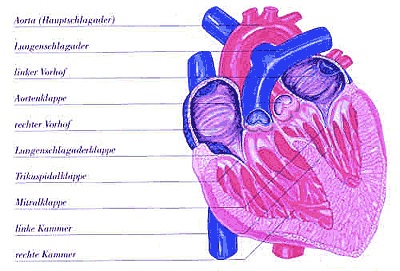 Aorta (Hauptschlagader)
Lungenschlagader
linker Vorhof
Aortenklappe
rechter Vorhof
Lungenschlagaderklappe
Trikuspidalklappe
Mitralklappe
linke Kammer
rechte Kammer